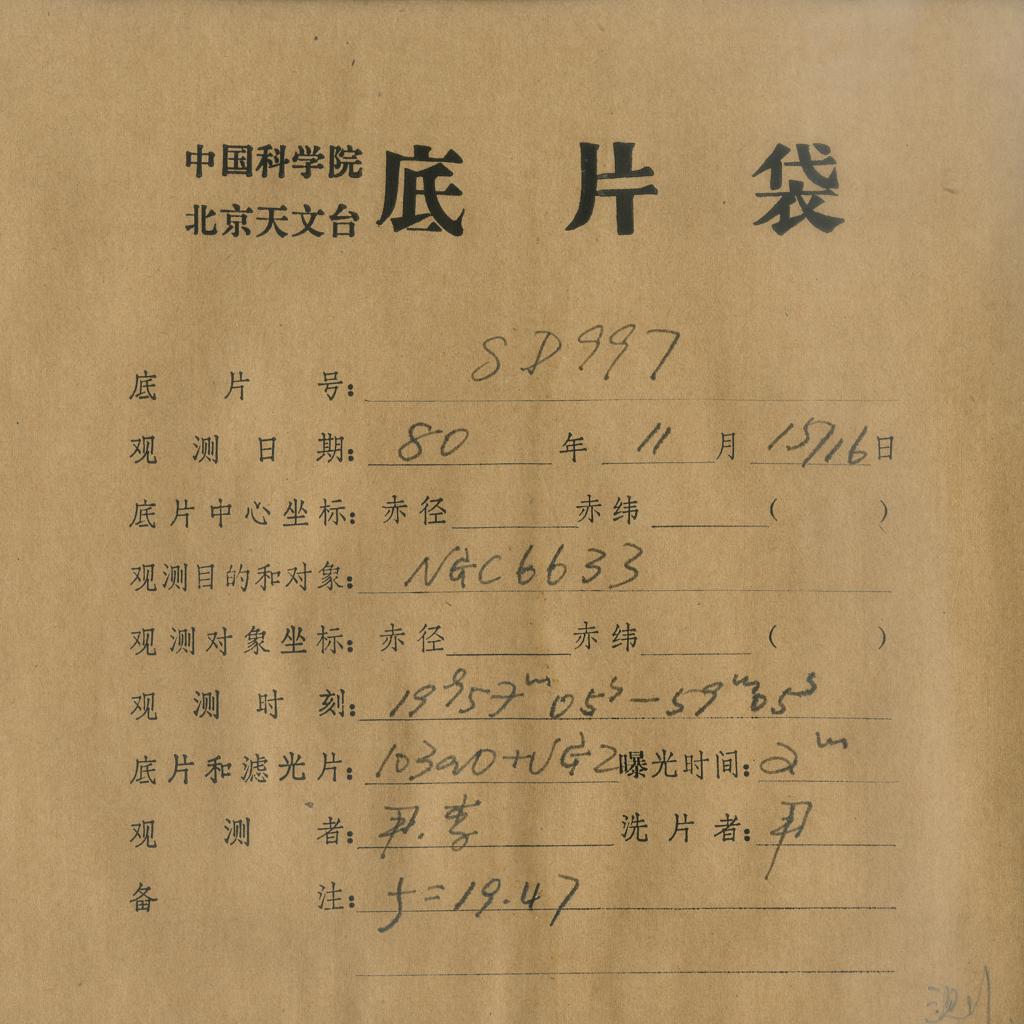 中国科学院
北京天文台
底片袋
底片号: SD997
观测日期: 80年11月15/16日
底片中心坐标: 赤径 赤纬 ( )
观测目的和对象: NGC6633
观测对象坐标: 赤径 赤纬 ( )
观测时刻: 19h57m05s—59m05s
底片和滤光片: 103aO+UG2 曝光时间: 2m
观测者: 尹.李 洗片者: 尹
备注: f=19.47
测